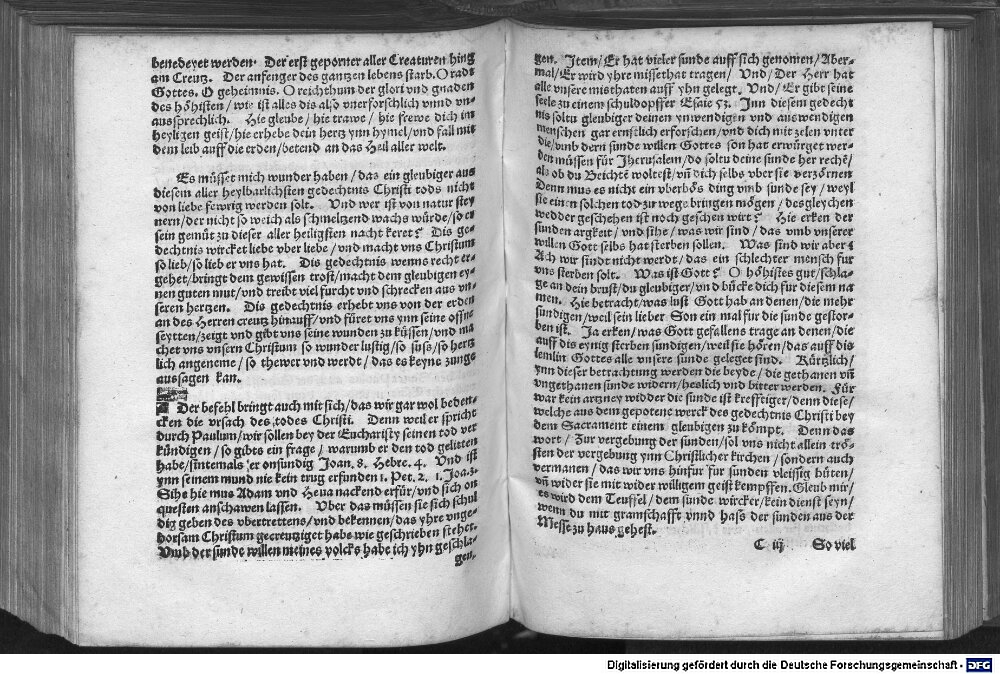 benedeyet werden. Der erst geporner aller Creaturen hing
am Creutz. Der anfenger des gantzen lebens starb. O radt
Gottes. O geheimnis. O reichthum der glori vnd gnaden
des höhisten / wie ist alles dis also vnerforschlich vnnd vn-
aussprechlich. Hie gleube / hie trawe / hie frewe dich im
heyligen geist / hie erhebe dein hertz ynn hymel / vnd fall mit
dem leib auff die erden / betend an das Heil aller welt.
Es müsset mich wunder haben / das ein gleubiger aus
diesem aller heylbarlichsten gedechtnis Christi tods nicht
von liebe fewrig werden solt. Vnd wer ist von natur stey
nern / der nicht so weich als schmeltzend wachs würde / so er
sein gemüt zu dieser aller heiligsten nacht keret? Dis ge-
dechtnis wircket liebe vber liebe / vnd macht vns Christum
so lieb / so lieb er vns hat. Dis gedechtnis wenns recht er-
gehet / bringt dem gewissen trost / macht dem gleubigen ey-
nen guten mut / vnd treibt viel furcht vnd schrecken aus vn-
seren hertzen. Dis gedechtnis erhebt vns von der erden
an des Herren creutz hinauff / vnd füret vns ynn seine offne
seytten / zeigt vnd gibt vns seine wunden zu küssen / vnd ma
chet vns vnsern Christum so wunder lustig / so süse / so hertz
lich angeneme / so thewer vnd werdt / das es keyne zunge
aussagen kan.
Der befehl bringt auch mit sich / das wir gar wol beden-
cken die vrsach des todes Christi. Denn weil er spricht
durch Paulum / wir sollen bey der Eucharisty seinen tod ver
kündigen / so gibts ein frage / warumb er den tod gelitten
habe / sintemals er onsundig Joan. 8. Hebre. 4. Vnd ist
ynn seinem mund nie kein trug erfunden 1. Pet. 2. 1. Joa. 3.
Sihe hie mus Adam vnd Heua nackend erfür / vnd sich on
questen anschawen lassen. Vber das müssen sie sich schul
dig geben des vbertrettens / vnd bekennen / das yhre vnge-
horsam Christum gecreutziget habe wie geschrieben stehet.
Vmb der sunde willen meines volcks habe ich yhn geschla-
gen.
gen. Item / Er hat vieler sunde auff sich genomen / Aber-
mal / Er wird yhre missethat tragen / Vnd / Der Herr hat
alle vnsere misthaten auff yhn gelegt. Vnd / Er gibt seine
seele zu einem schuldopffer Esaie 53. Inn diesem gedecht
nis soltu gleubiger deinen ynwendigen vnd auswendigen
menschen gar ernstlich erforschen / vnd dich mit zelen vnter
die / vmb dern sunde willen Gottes son hat erwürget wer-
den müssen für Jherusalem / do soltu deine sunde her rechē /
als ob du Beichtē woltest / vñ dich selbs vber sie verzörnen
Denn mus es nicht ein vberbös ding vmb sunde sey / weyl
sie einen solchen tod zu wege bringen mögen / desgleychen
wedder geschehen ist noch geschen wirt? Hie erken der
sunden argkeit / vnd sihe / was wir sind / das vmb vnserer
willen Gott selbs hat sterben sollen. Was sind wir aber?
Ach wir sindt nicht werdt / das ein schlechter mensch fur
vns sterben solt. Was ist Gott? O höhistes gut / schla-
ge an dein brust / du gleubiger / vnd bücke dich für diesem na
men. Hie betracht / was lust Gott hab an denen / die mehr
sundigen / weil sein lieber Son ein mal für die sunde gestor-
ben ist. Ja erken / was Gott gefallens trage an denen / die
auff dis eynig sterben sundigen / weil sie hören / das auff dis
lemlin Gottes alle vnsere sunde geleget sind. Kürtzlich /
ynn dieser betrachtung werden die beyde / die gethanen vñ
vngethanen sunde widern / heslich vnd bitter werden. Für
war kein artzney widder die sunde ist krefftiger / denn diese /
welche aus dem gepotene werck des gedechtnis Christi bey
dem Sacrament einem gleubigen zu kömpt. Denn das
wort / Zur vergebung der sunden / sol vns nicht allein trö-
sten der vergebung ynn Christlicher kirchen / sondern auch
vermanen / das wir vns hinfur für sunden vleissig hüten /
vñ wider sie mit wider willigem geist kempffen. Gleub mir /
es wird dem Teuffel / dem sunde wircker / kein dienst seyn /
wenn du mit gramschafft vnnd hass der sunden aus der
Messe zu haus gehest.
C iij So viel
Digitalisierung gefördert durch die Deutsche Forschungsgemeinschaft - DFG